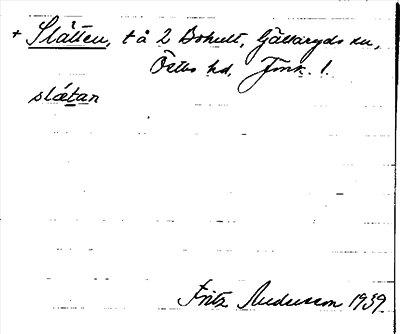 + Slåtten, t å 2 Bohult, Gällaryds sn,
Östbo hd, Jönk. l.
slåtan
Fritz Andersson 1939.